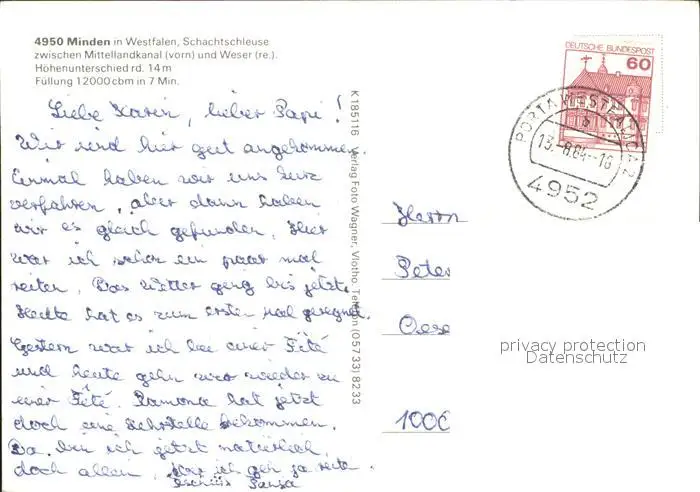 4950 Minden in Westfalen, Schachtschleuse
zwischen Mittellandkanal (vorn) und Weser (re.).
Höhenunterschied rd. 14 m
Füllung 12000 cbm in 7 Min.
Liebe Karin, lieber Papi!
Wir sind hier gut angekommen.
Einmal haben wir uns kurz
verfahren, aber dann haben
wir es gleich gefunden. Hier
war ich schon ein paar mal
reiten. Das Wetter ging bis jetzt.
Heute hat es zum ersten Mal geregnet.
Gestern war ich bei einer Fété
und heute gehn wir wieder zu
einer Fété. Ramona hat jetzt
doch eine Lehrstelle bekommen.
Da bin ich jetzt natürlich
doch allein, ich geh ja reiten.
Tschüß
K 185116 Verlag Foto Wagner, Vlotho, Telefon (05733) 8233
DEUTSCHE BUNDESPOST
60
PORTA WESTFALICA 2
13.-8.84-16
4952
Herrn
Peter
1000
privacy protection
Datenschutz